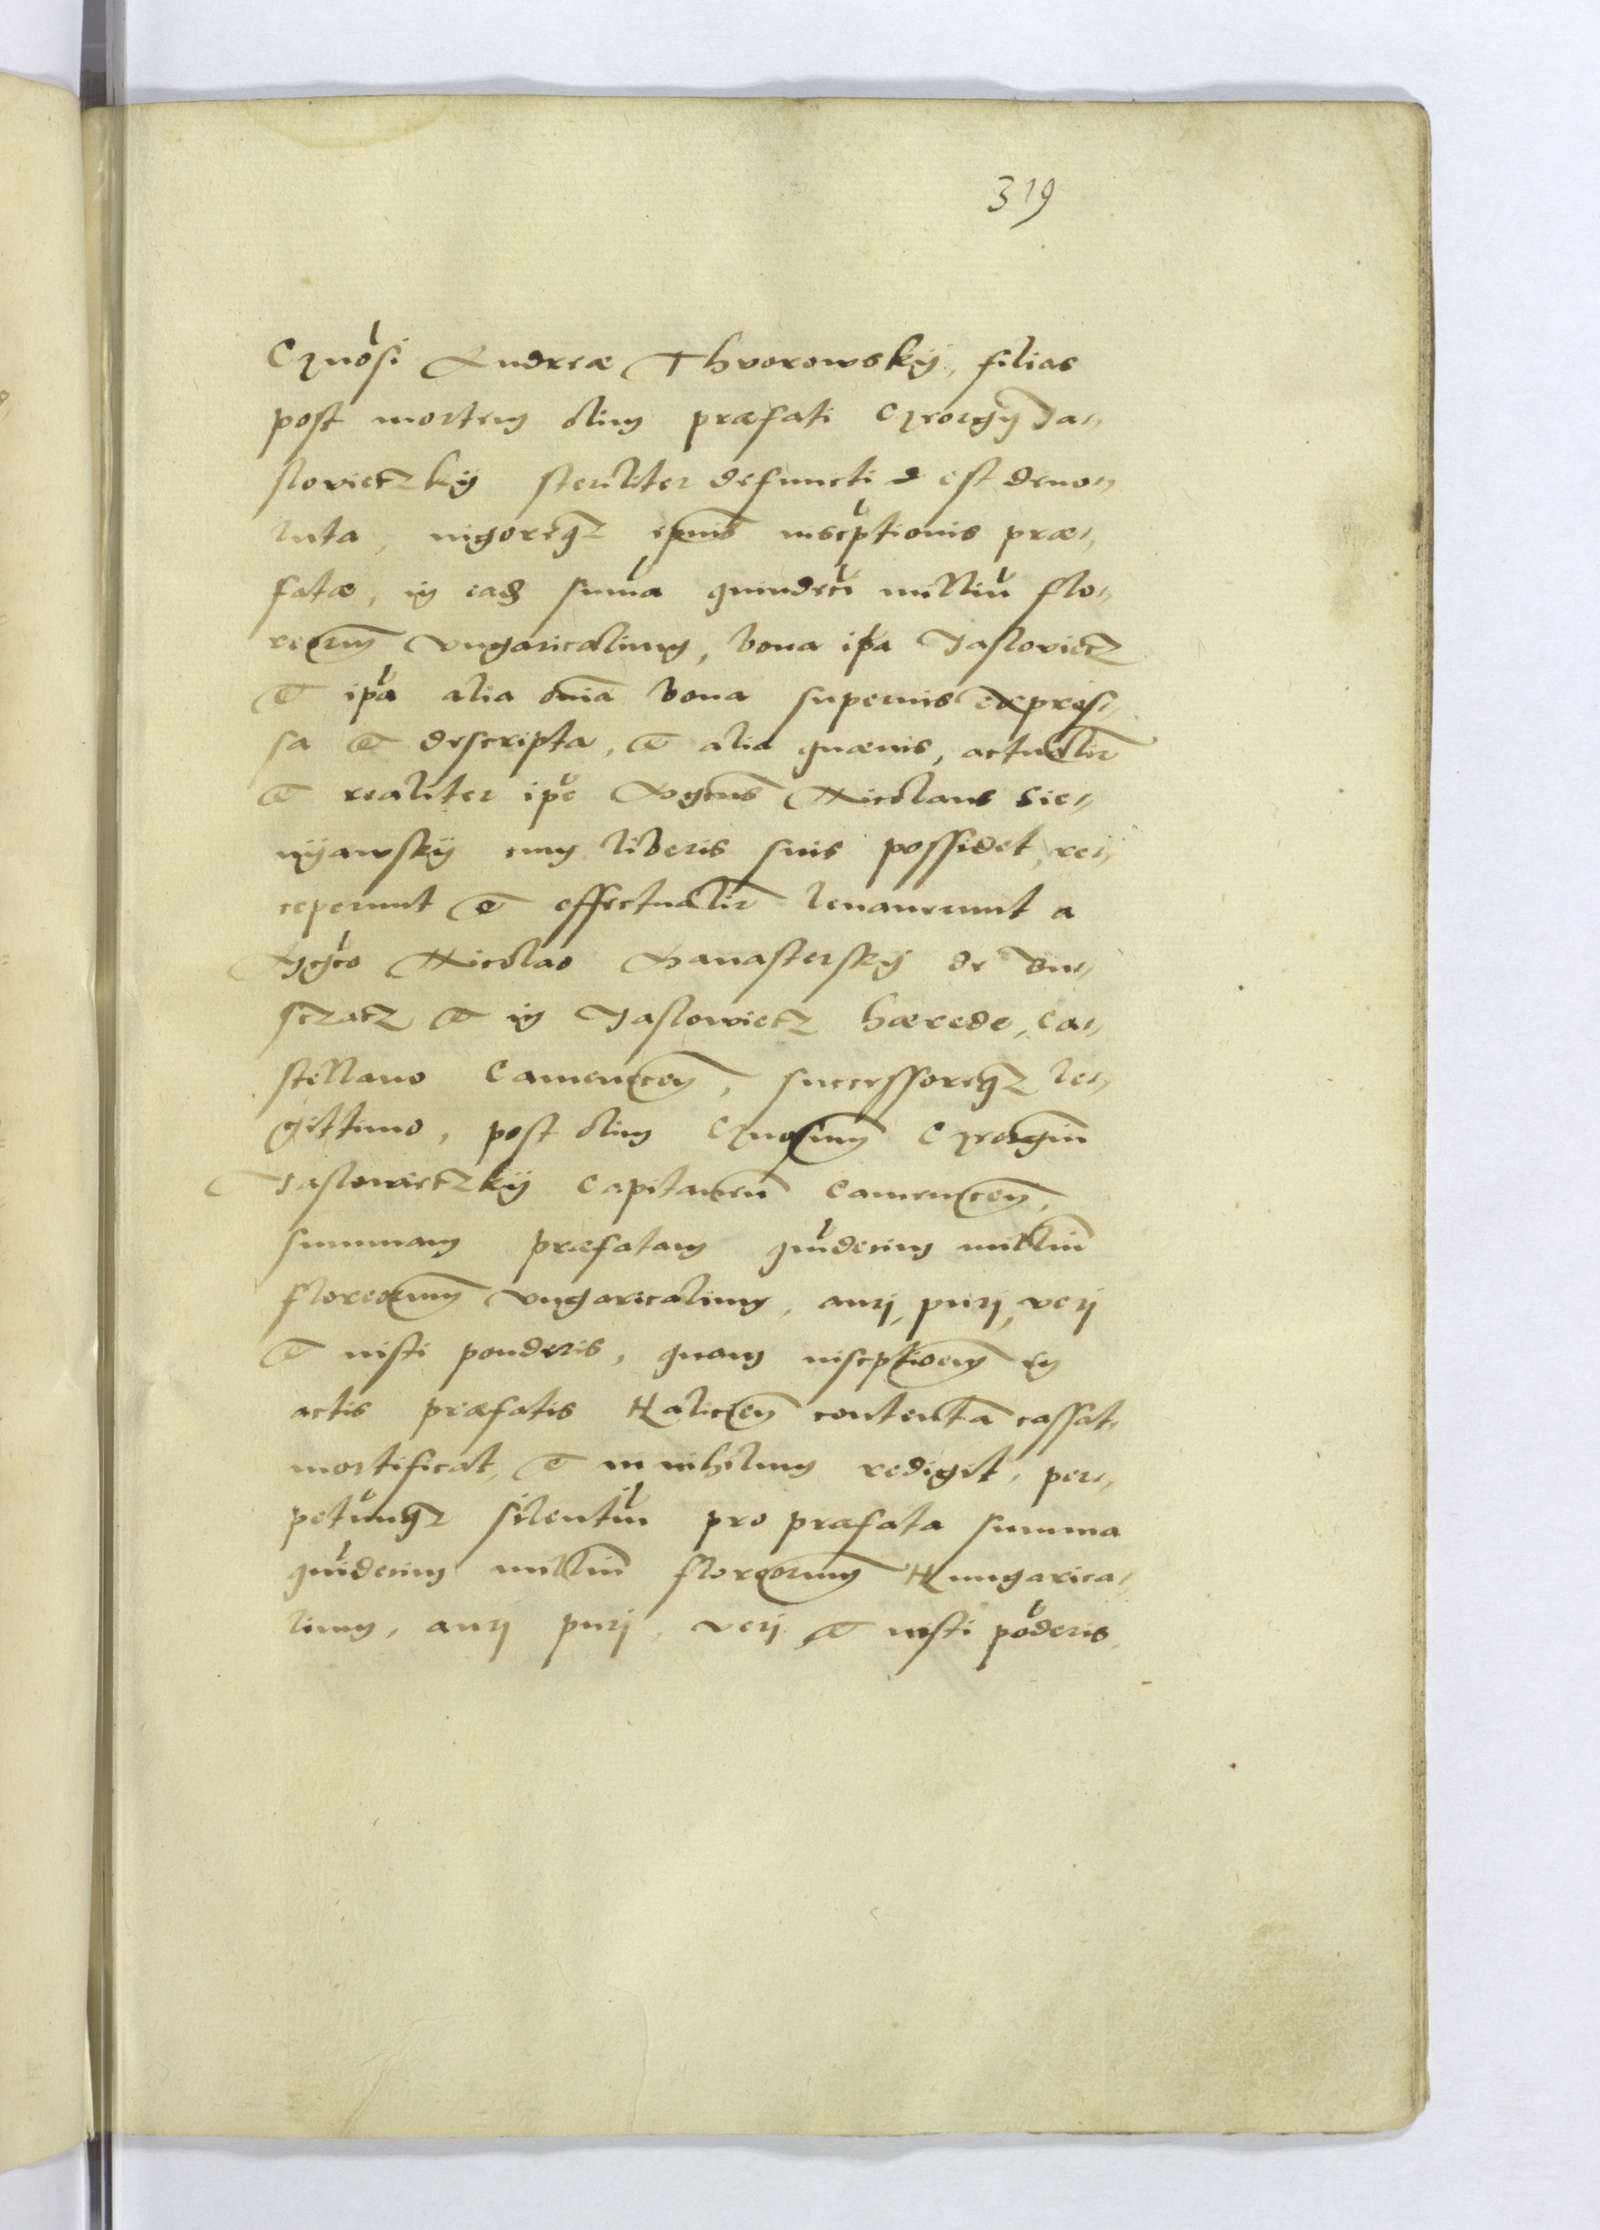 319
Gnosi Andreæ Thvorowskÿ, filias
post mortem olim præfati Georgÿ Ja-
slovietzkÿ steriliter defuncti d est deuo-
luta, uigoreqz ipius inscptionis præ-
fatæ, in eadē suma quindeci milliu flo-
renorum vngaricalium, bona ipa Jaslovietz
et ipa alia omīa bona superius expres-
sa et descripta, et alia quæuis, actualitr
et realiter ipe Mgcus Nicolaus Sie-
nÿawskÿ cum liberis suis possidet, re-
ceperunt et effectualitr leuauerunt a
Mgco Nicolao Manasterskÿ de Bu-
sczacz et in Jaslowietz hærede, ca-
stellano Camenecen, successoreqz le-
gittimo, post olim Gnosum Georgiu
Jaslowietzkÿ Capitaneu Camenecen,
summam præfatam quidecim milliu
florenorum vngaricalium, aurj, purj, verj
et iusti ponderis, quam inscptionem in
actis præfatis Halicien contentā cassat,
mortificat, et in nihilum redigit, per-
petuumqz silentiu pro præfata summa
quidecim milliu florenorum Hungarica-
lium, aurj purj, verj et iusti poderis,